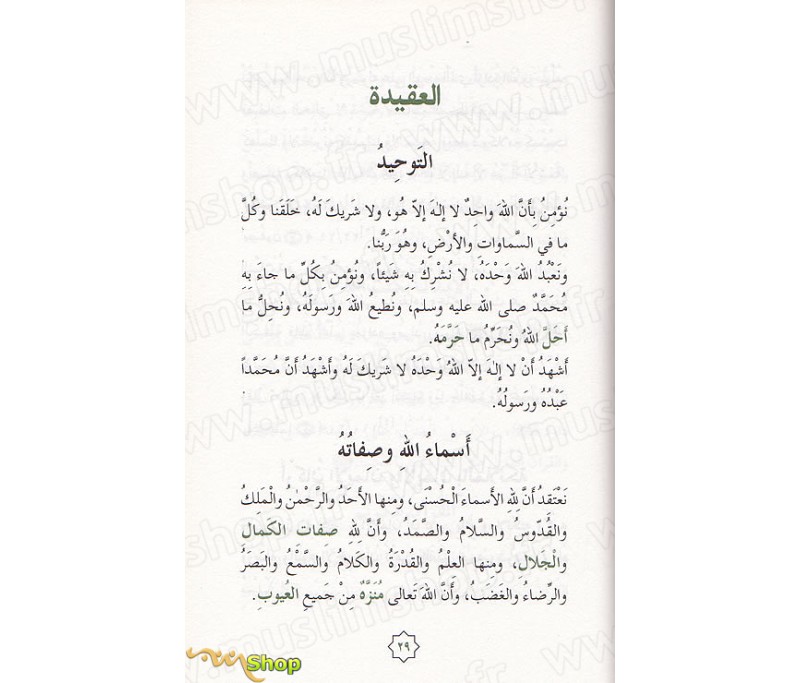 العقيدة
التَوحِيدُ
نُؤمِنُ بِأَنَّ اللهَ واحِدٌ لا إِلـٰهَ إلاّ هُو، ولا شَريكَ لَهُ، خَلَقَنا وكُلَّ
ما في السَّماواتِ والأرْضِ، وهُوَ رَبُّنا.
ونَعْبُدُ اللهَ وَحْدَهُ، لا نُشْرِكُ بِهِ شَيئاً، ونُؤمِنُ بِكُلِّ ما جاءَ بِهِ
مُحَمَّدٌ صلى الله عليه وسلم، ونُطيعُ اللهَ ورَسولَهُ، ونُحِلُّ ما
أَحَلَّ اللهُ ونُحَرِّمُ ما حَرَّمَهُ.
أَشْهَدُ أَنْ لا إلـٰهَ إلاّ اللهُ وَحْدَهُ لا شَريكَ لَهُ وأَشْهَدُ أَنَّ مُحَمَّداً
عَبْدُهُ ورَسولُهُ.
أَسْماءُ اللهِ وصِفاتُهُ
نَعْتَقِدُ أَنَّ لِلهِ الأَسماءَ الْحُسْنَى، ومِنها الأَحَدُ والرَّحْمٰنُ والْمَلِكُ
والقُدّوسُ والسَّلامُ والصَّمَدُ، وأَنَّ لِلهِ صِفاتِ الكَمال
والْجَلال، ومِنها العِلْمُ والقُدْرَةُ والكَلامُ والسَّمْعُ والبَصَرُ
والرِّضاءُ والغَضَبُ، وأَنَّ اللهَ تَعالى مُنَزَّهٌ مِنْ جَميعِ العُيوبِ.
٢٩
Shop
www.muslimshop.fr